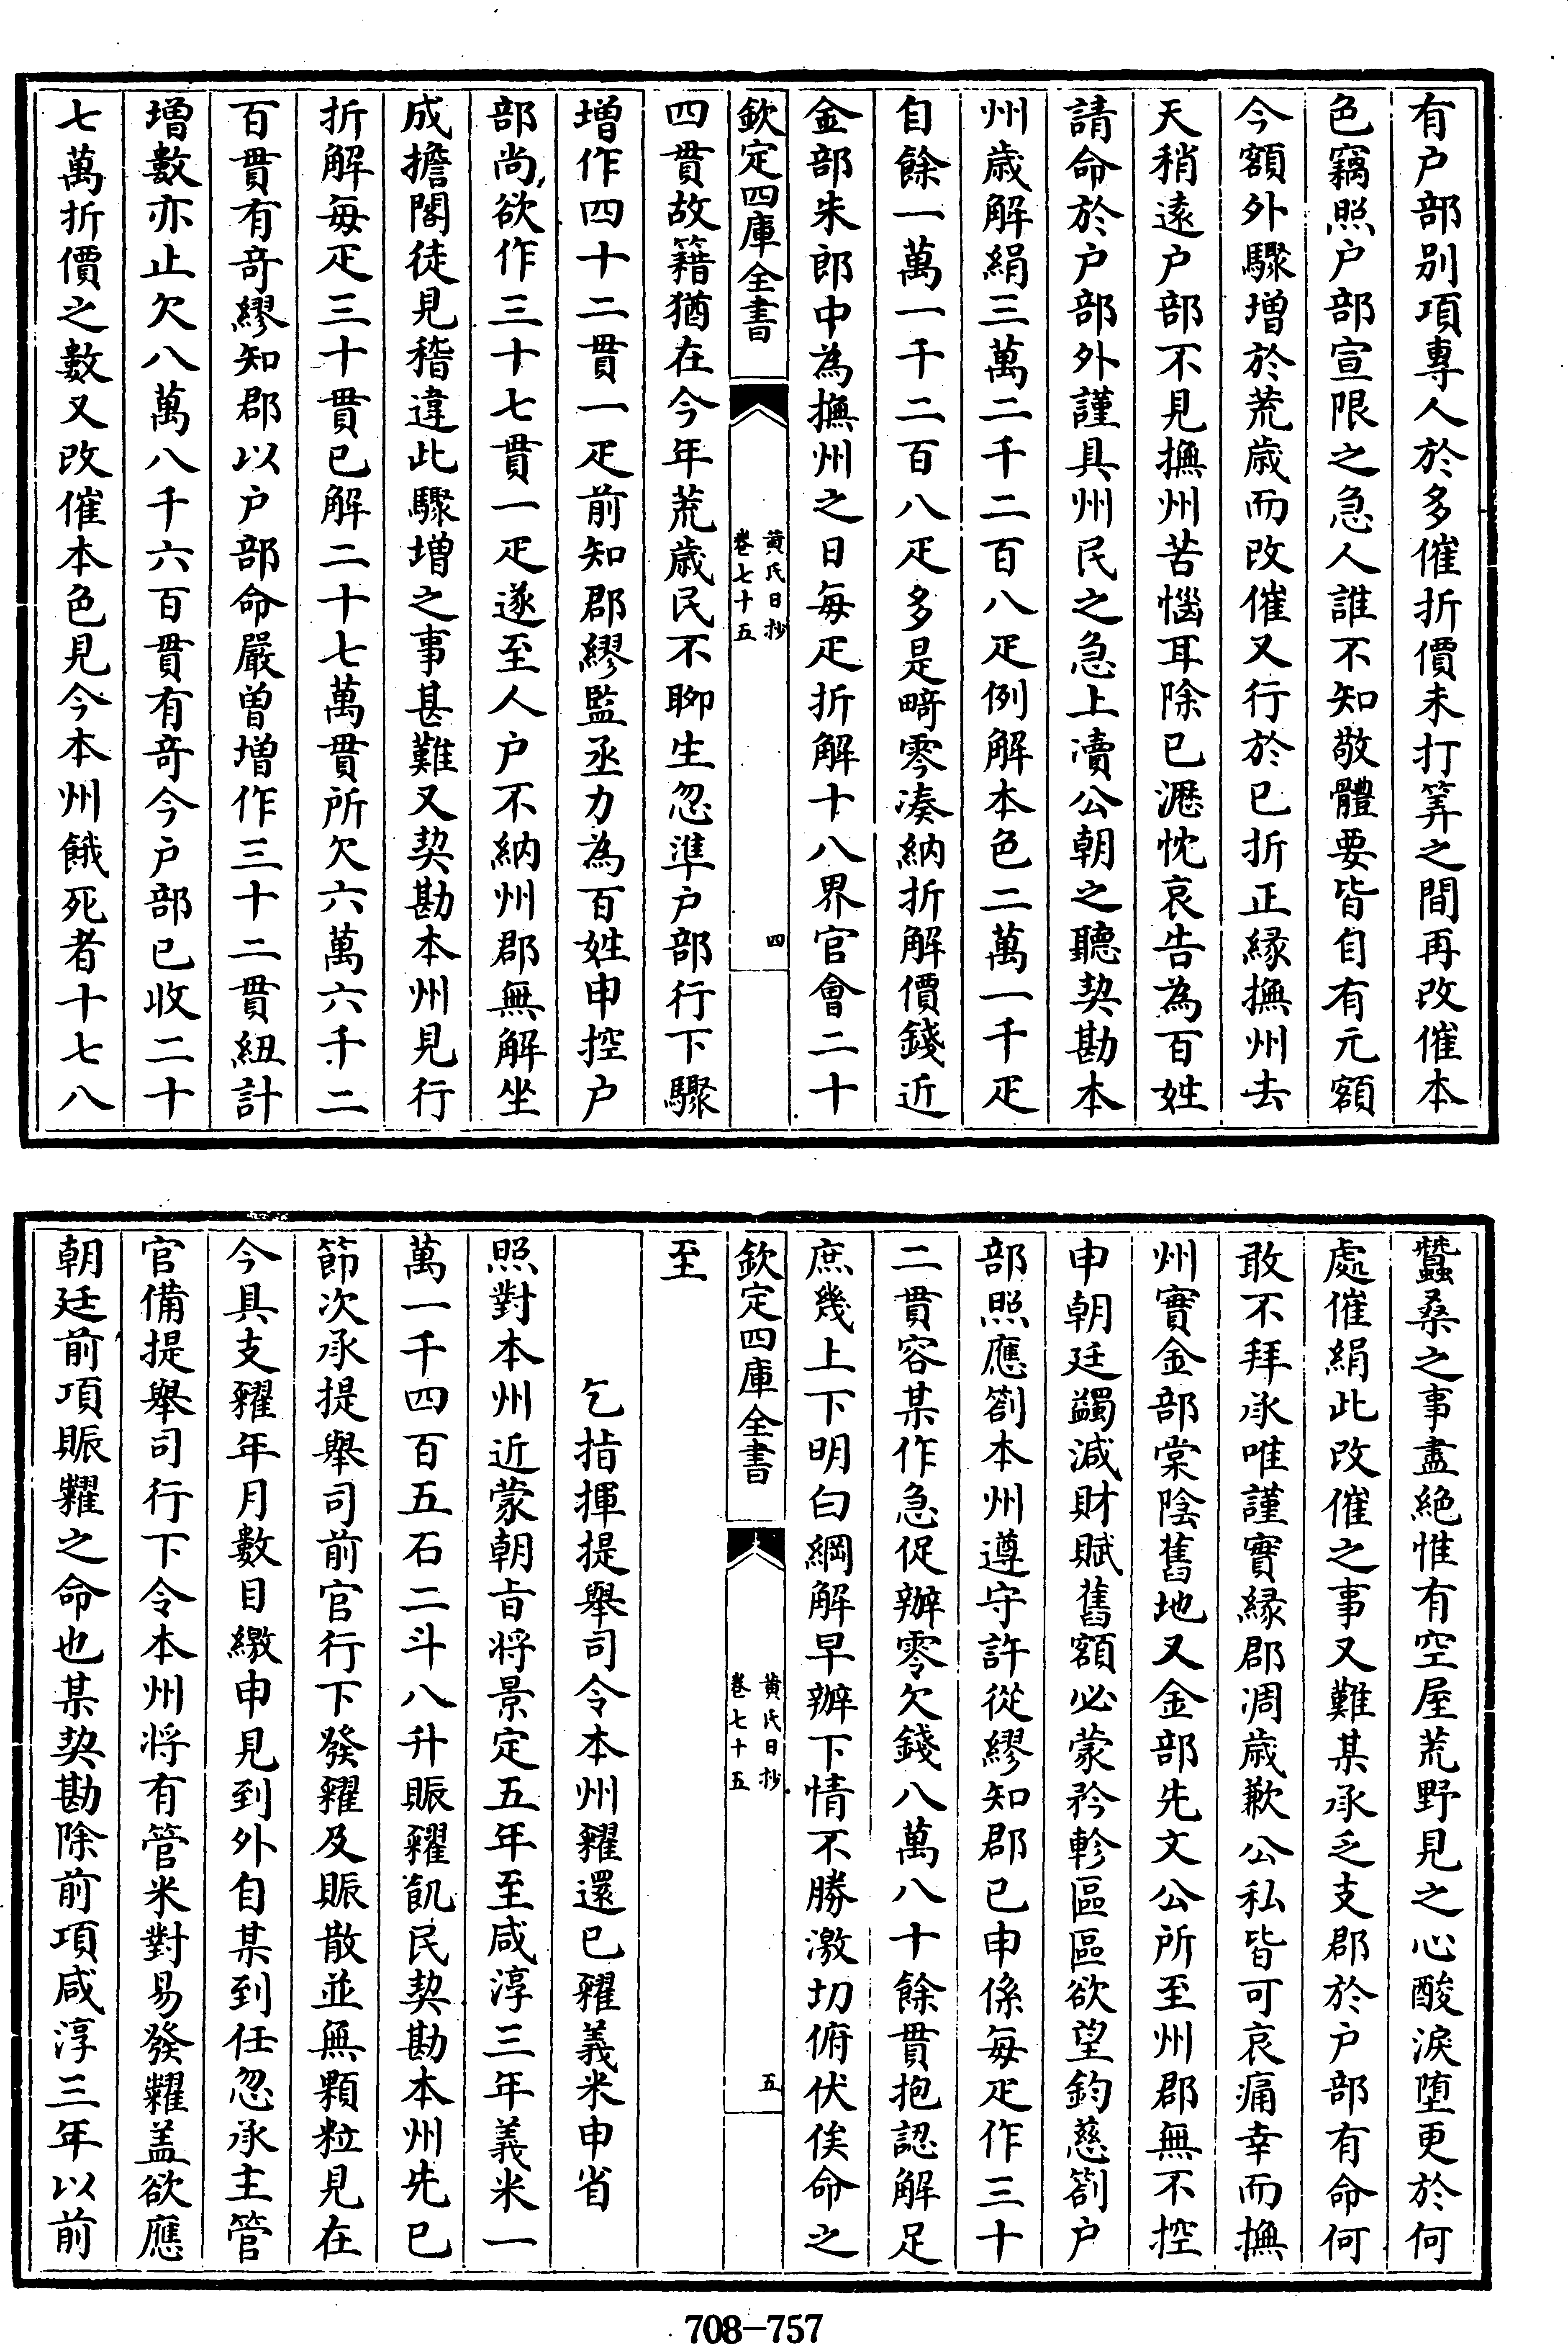 有户部别項專人於多催折價未打筭之間再改催本
色竊照户部宣限之急人誰不知敬體要皆自有元額
今額外驟增於荒歳而改催又行於已折正縁撫州去
天稍逺户部不見撫州苦惱耳除已瀝忱哀告為百姓
請命於户部外謹具州民之急上瀆公朝之聽契勘本
州歳解絹三萬二千二百八疋例解本色二萬一千疋
自餘一萬一千二百八疋多是畸零凑納折解價錢近
金部朱郎中為撫州之日每疋折解十八界官會二十
欽定四庫全書
黄氏日抄
卷七十五
四
四貫故籍猶在今年荒歳民不聊生忽準户部行下驟
增作四十二貫一疋前知郡繆監丞力為百姓申控户
部尚欲作三十七貫一疋遂至人户不納州郡無解坐
成擔閣徒見稽違此驟增之事甚難又契勘本州見行
折解每疋三十貫已解二十七萬貫所欠六萬六千二
百貫有竒繆知郡以户部命嚴曽增作三十二貫紐計
增數亦止欠八萬八千六百貫有竒今户部已收二十
七萬折價之數又改催本色見今本州餓死者十七八
蠶桑之事盡絶惟有空屋荒野見之心酸淚堕更於何
處催絹此改催之事又難某承乏支郡於户部有命何
敢不拜承唯謹實縁郡凋歳歉公私皆可哀痛幸而撫
州實金部棠陰舊地又金部先文公所至州郡無不控
申朝廷蠲減財賦舊額必蒙矜軫區區欲望鈞慈劄户
部照應劄本州遵守許從繆知郡已申係每疋作三十
二貫容某作急促辦零欠錢八萬八十餘貫抱認解足
庶幾上下明白綱解早辦下情不勝激切俯伏俟命之
欽定四庫全書
黄氏日抄
卷七十五
五
至
乞指揮提舉司令本州糴還已糶義米申省
照對本州近蒙朝㫖将景定五年至咸淳三年義米一
萬一千四百五石二斗八升賑糶飢民契勘本州先已
節次承提舉司前官行下發糶及賑散並無顆粒見在
今具支糶年月數目繳申見到外自某到任忽承主管
官備提舉司行下令本州将有管米對易發糶盖欲應
朝廷前項賑糶之命也某契勘除前項咸淳三年以前
708-757